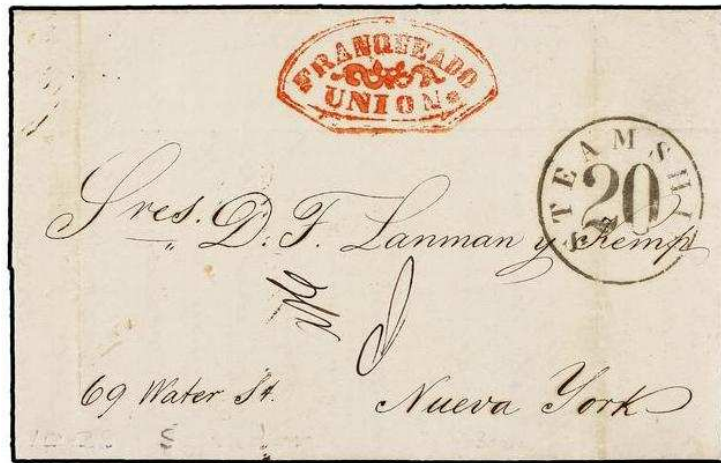 FRANQUEADO
UNION
STEAMSHIP
20
Sres. D. F. Lanman y Kemp
69 Water St.
Nueva York